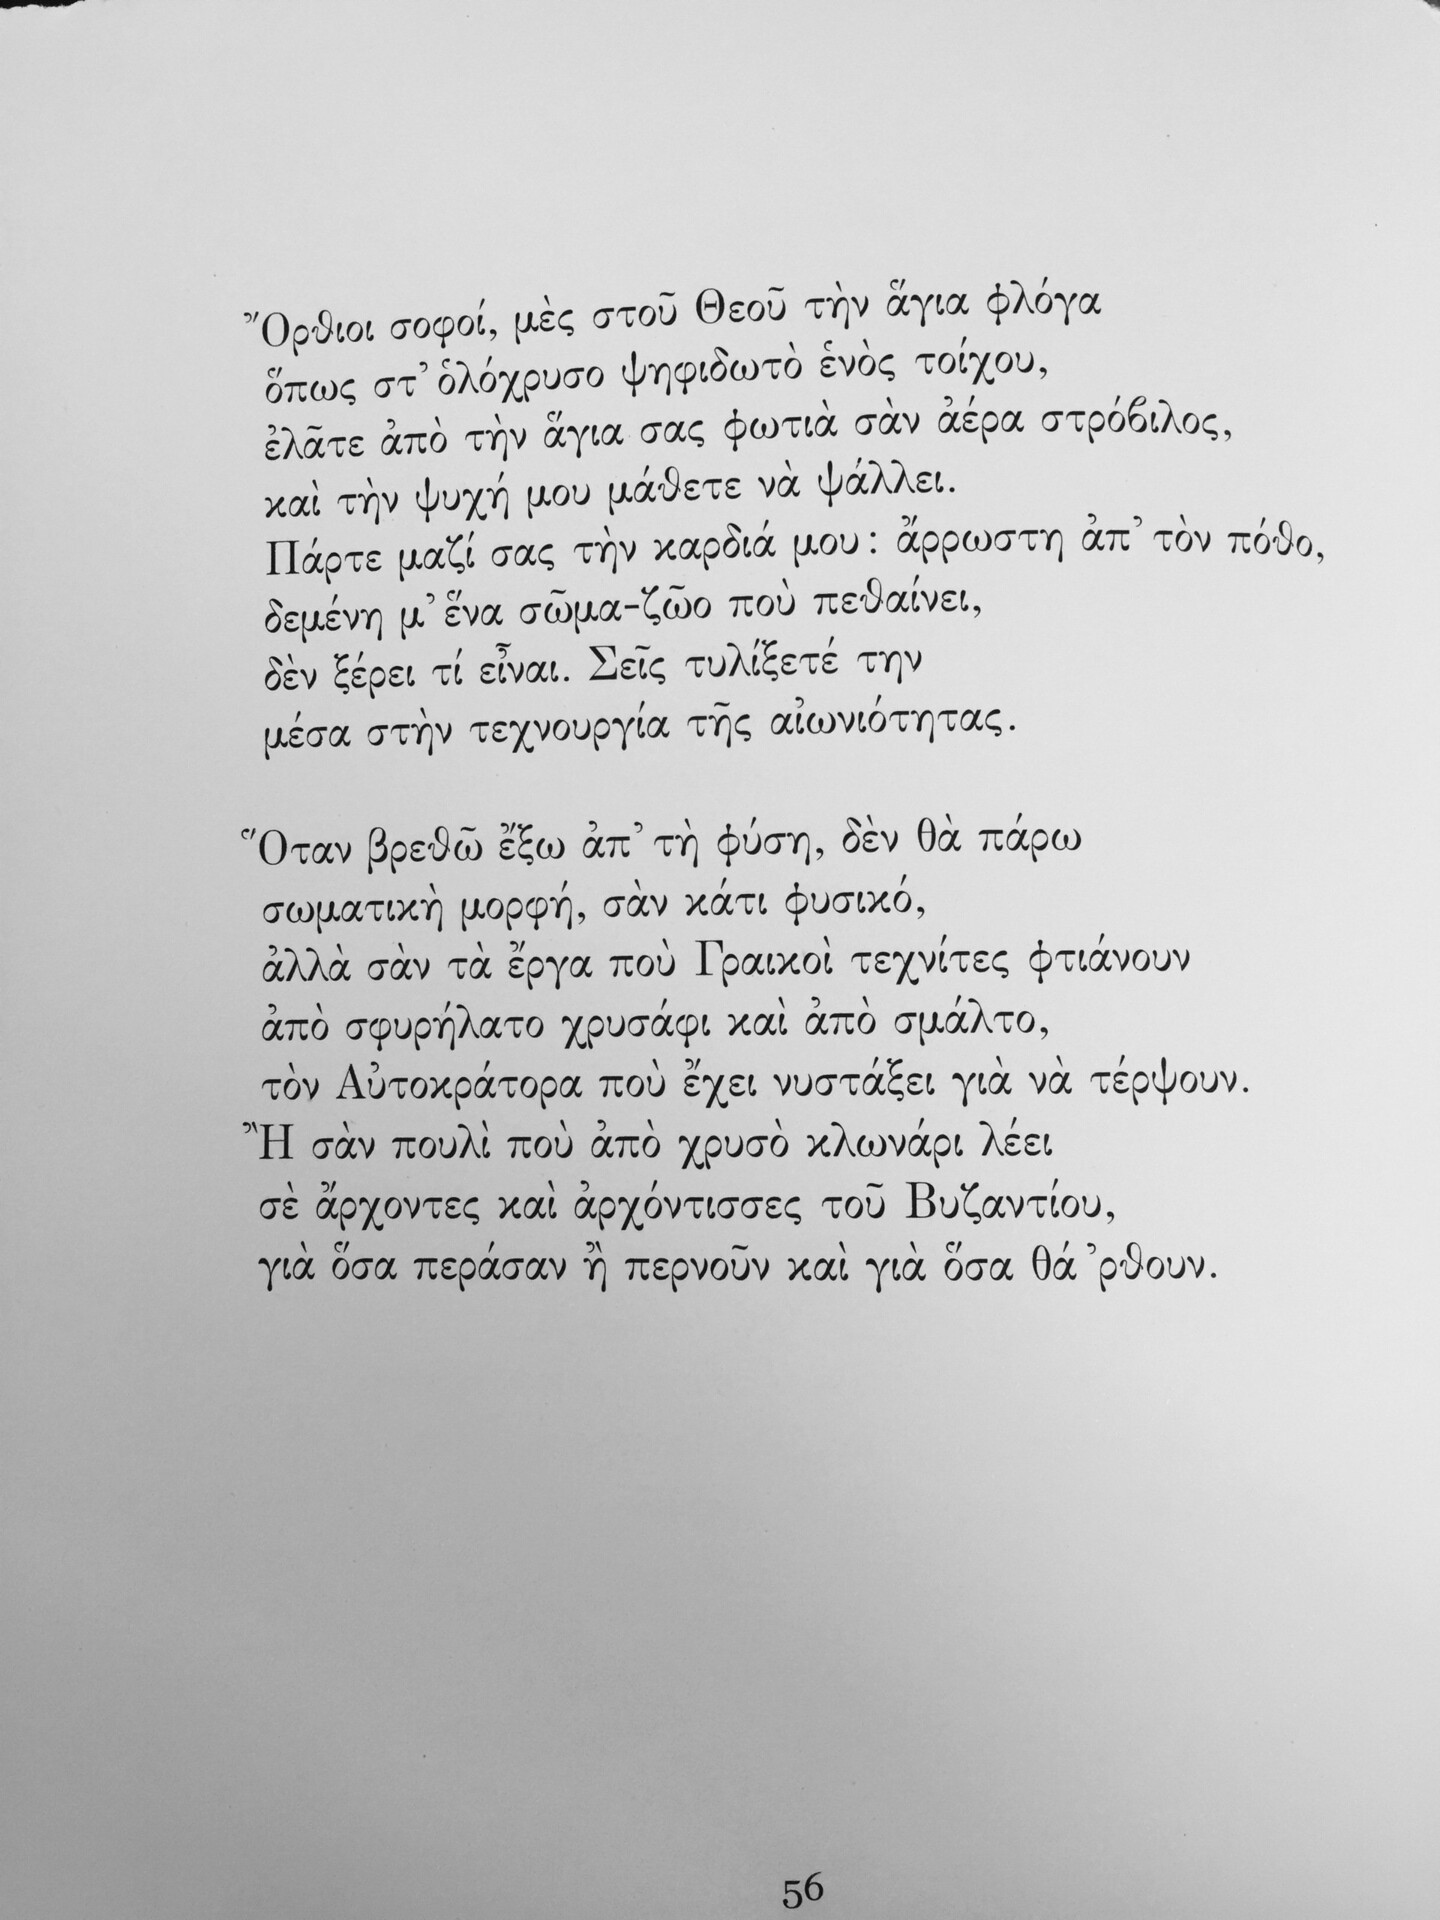 Ὄρθιοι σοφοί, μὲς στοῦ Θεοῦ τὴν ἅγια φλόγα
ὅπως στ᾿ ὁλόχρυσο ψηφιδωτὸ ἑνὸς τοίχου,
ἐλᾶτε ἀπὸ τὴν ἅγια σας φωτιὰ σὰν ἀέρα στρόβιλος,
καὶ τὴν ψυχή μου μάθετε νὰ ψάλλει.
Πάρτε μαζί σας τὴν καρδιά μου: ἄρρωστη ἀπ᾿ τὸν πόθο,
δεμένη μ᾿ ἕνα σῶμα-ζῶο ποὺ πεθαίνει,
δὲν ξέρει τί εἶναι. Σεῖς τυλίξετέ την
μέσα στὴν τεχνουργία τῆς αἰωνιότητας.
Ὅταν βρεθῶ ἔξω ἀπ᾿ τὴ φύση, δὲν θὰ πάρω
σωματικὴ μορφή, σὰν κάτι φυσικό,
ἀλλὰ σὰν τὰ ἔργα ποὺ Γραικοὶ τεχνίτες φτιάνουν
ἀπὸ σφυρήλατο χρυσάφι καὶ ἀπὸ σμάλτο,
τὸν Αὐτοκράτορα ποὺ ἔχει νυστάξει γιὰ νὰ τέρψουν.
Ἢ σὰν πουλὶ ποὺ ἀπὸ χρυσὸ κλωνάρι λέει
σὲ ἄρχοντες καὶ ἀρχόντισσες τοῦ Βυζαντίου,
γιὰ ὅσα περάσαν ἢ περνοῦν καὶ γιὰ ὅσα θά ᾿ρθουν.
56